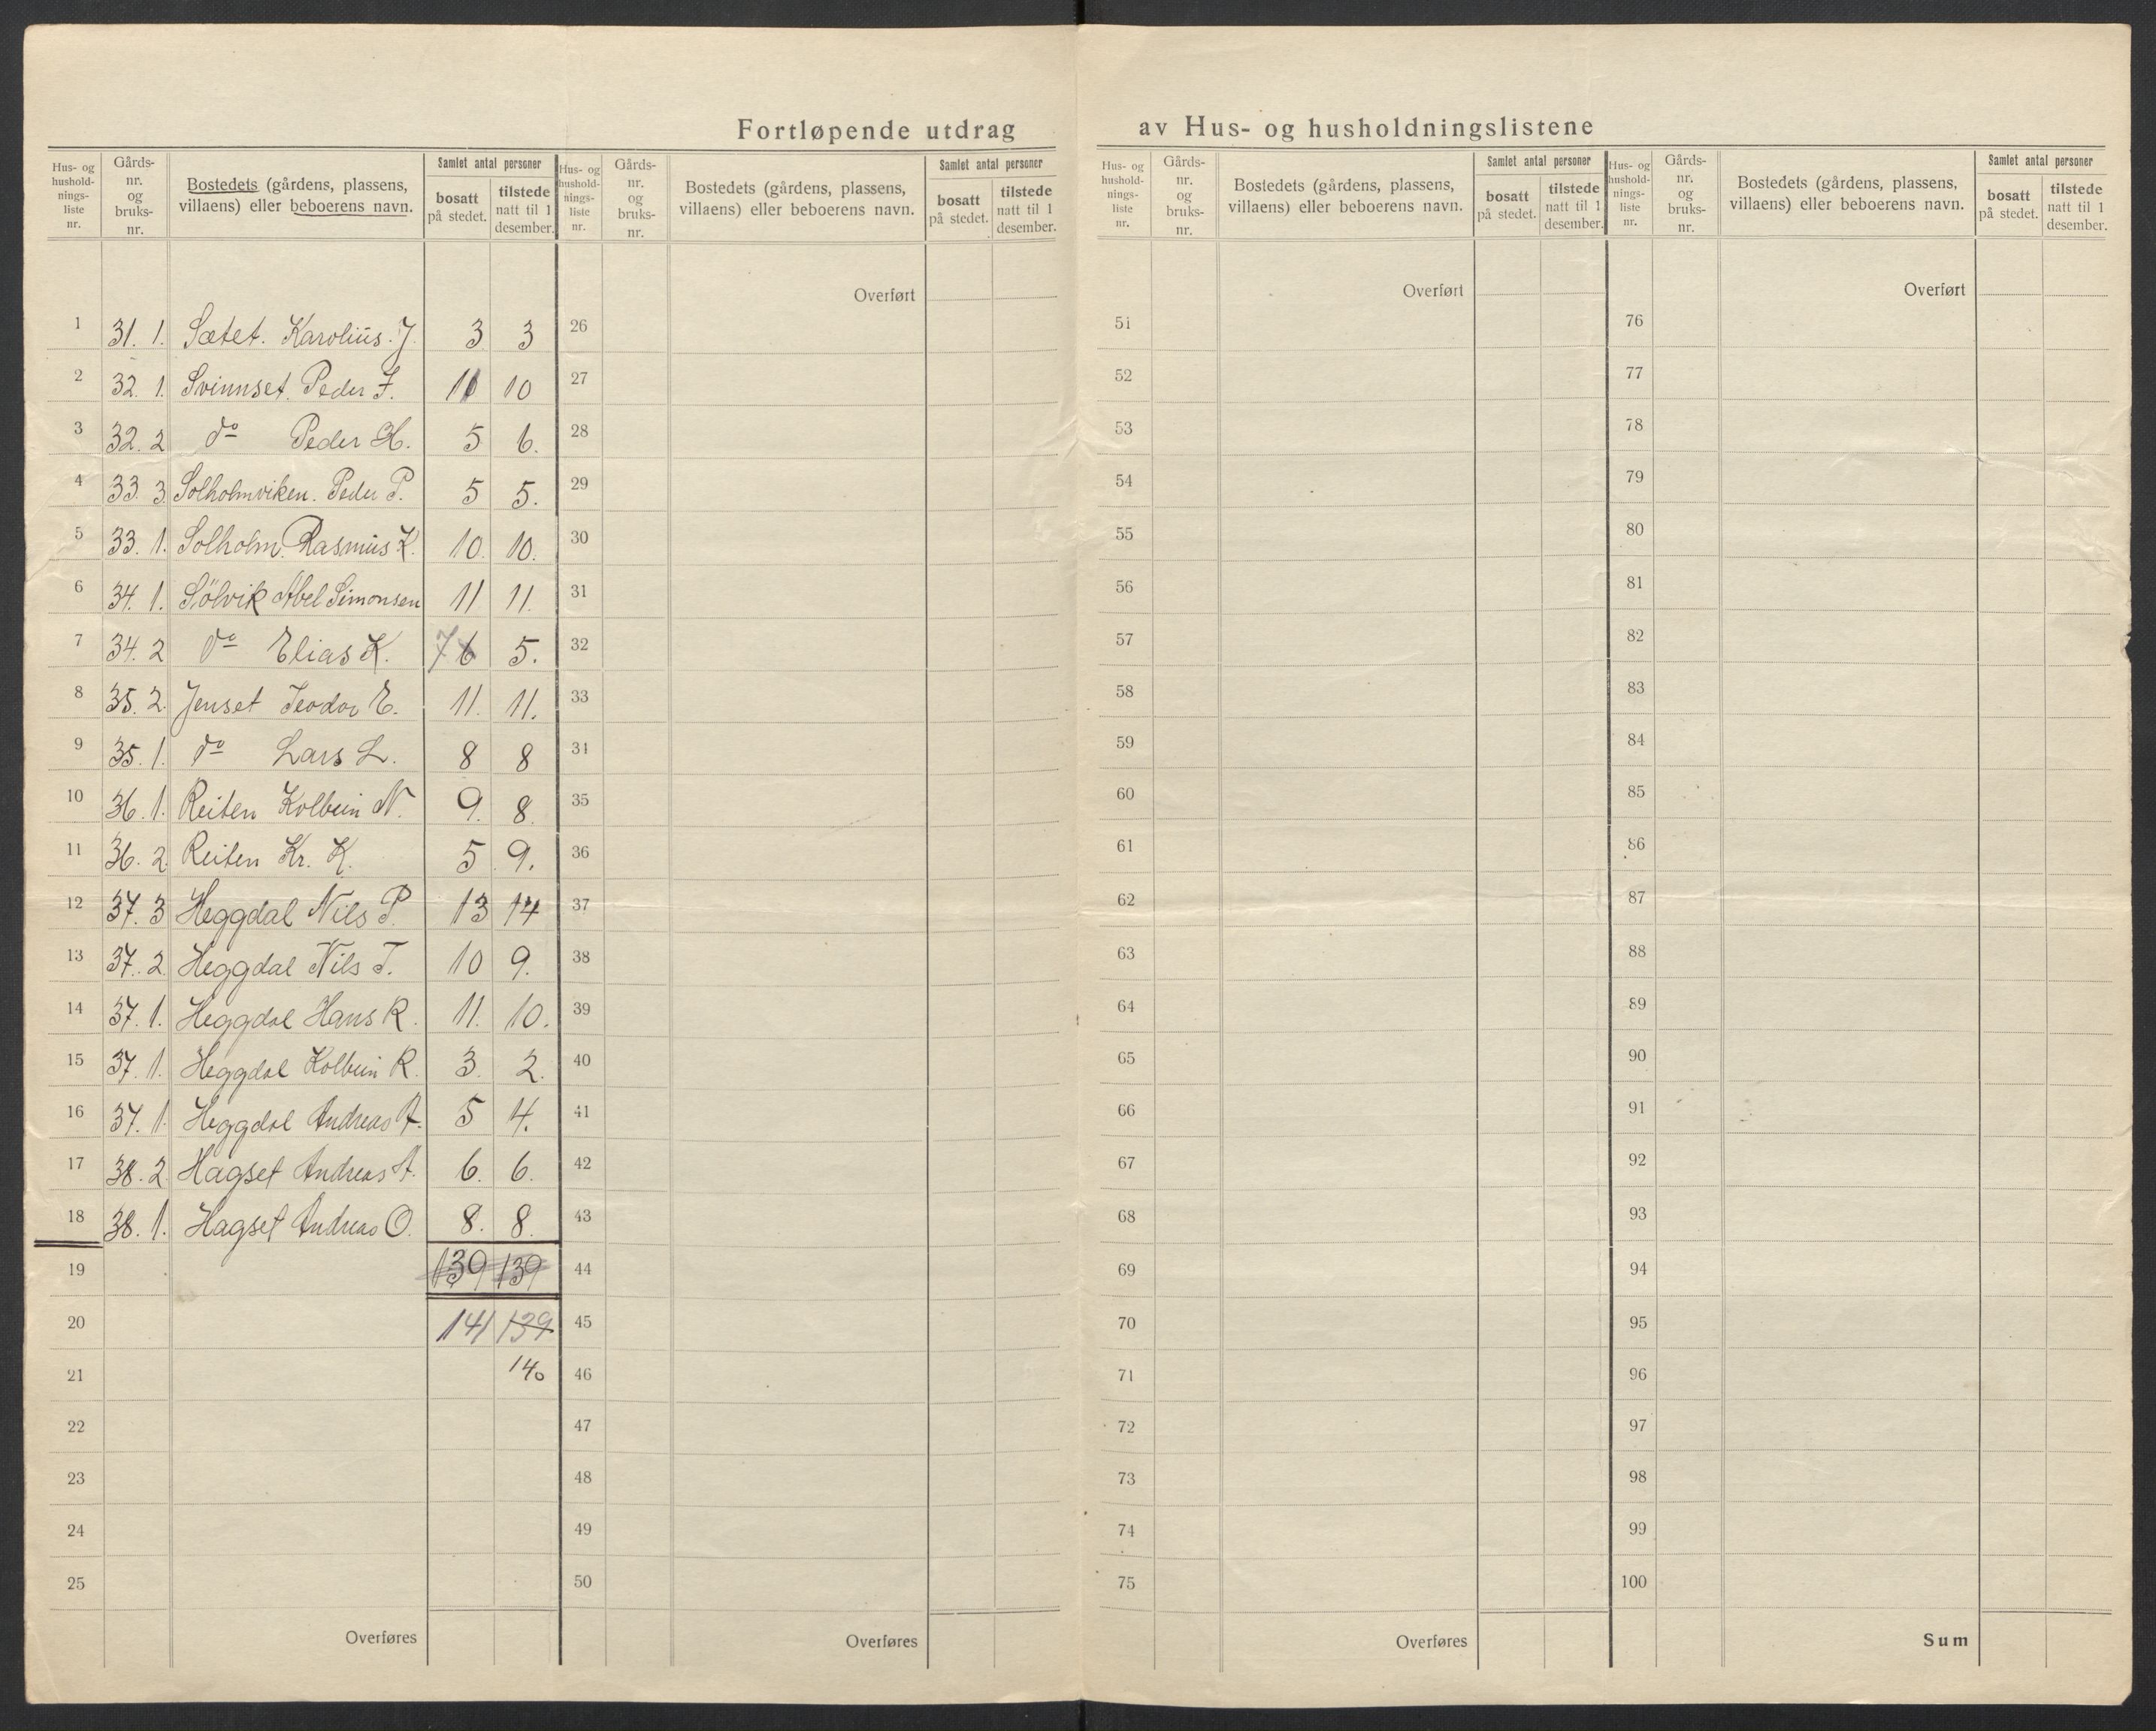 Fortløpende utdrag av Hus- og husholdningslistene
Hus- og hushold-nings-liste nr. Gårds-nr. og bruks-nr. Bostedets (gårdens, plassens, villaens) eller beboerens navn. Samlet antal personer bosatt på stedet. tilstede natt til 1 desember.
1 31. 1. Sætet. Karolius. J. 3 3
2 32. 1. Svinnset. Peder J. 11 10
3 32. 2 do Peder H. 5 6.
4 33. 3. Solholmviken. Peder P. 5 5.
5 33. 1. Solholm. Rasmus K. 10. 10.
6 34. 1. Sölvik Abel Simonsen 11 11.
7 34. 2 do Elias K. 7 6 5.
8 35. 2. Jenset Teodor E. 11. 11.
9 35. 1. do Lars L. 8 8
10 36. 1. Reiten Kolbein N. 9. 8.
11 36. 2. Reiten Kr. K. 5 9.
12 37. 3 Heggdal Nils P. 13 14
13 37. 2. Heggdal Nils T. 10 9.
14 37. 1. Heggdal Hans R. 11. 10.
15 37. 1. Heggdal Kolbein R. 3. 2.
16 37. 1. Heggdal Andreas A. 5 4.
17 38. 2. Hagset Andreas A. 6. 6.
18 38. 1. Hagset Andreas O. 8. 8.
19 139 139
20 141 139
21 140
22
23
24
25
Overføres
Hus- og hushold-nings-liste nr. Gårds-nr. og bruks-nr. Bostedets (gårdens, plassens, villaens) eller beboerens navn. Samlet antal personer bosatt på stedet. tilstede natt til 1 desember.
Overført
26
27
28
29
30
31
32
33
34
35
36
37
38
39
40
41
42
43
44
45
46
47
48
49
50
Overføres
Hus- og hushold-nings-liste nr. Gårds-nr. og bruks-nr. Bostedets (gårdens, plassens, villaens) eller beboerens navn. Samlet antal personer bosatt på stedet. tilstede natt til 1 desember.
Overført
51
52
53
54
55
56
57
58
59
60
61
62
63
64
65
66
67
68
69
70
71
72
73
74
75
Overføres
Hus- og hushold-nings-liste nr. Gårds-nr. og bruks-nr. Bostedets (gårdens, plassens, villaens) eller beboerens navn. Samlet antal personer bosatt på stedet. tilstede natt til 1 desember.
Overført
76
77
78
79
80
81
82
83
84
85
86
87
88
89
90
91
92
93
94
95
96
97
98
99
100
Sum